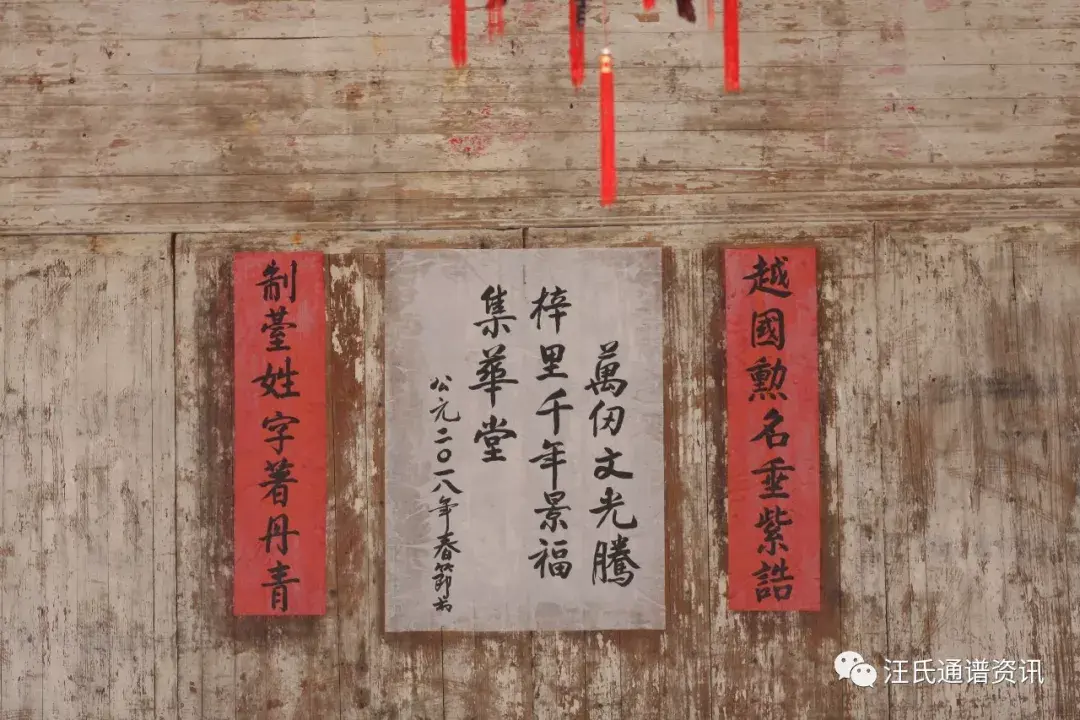 越國勲名垂紫誥
萬仞文光騰
梓里千年景福
集華堂
公元二〇一八年春節
制臺姓字著丹青
汪氏通谱资讯